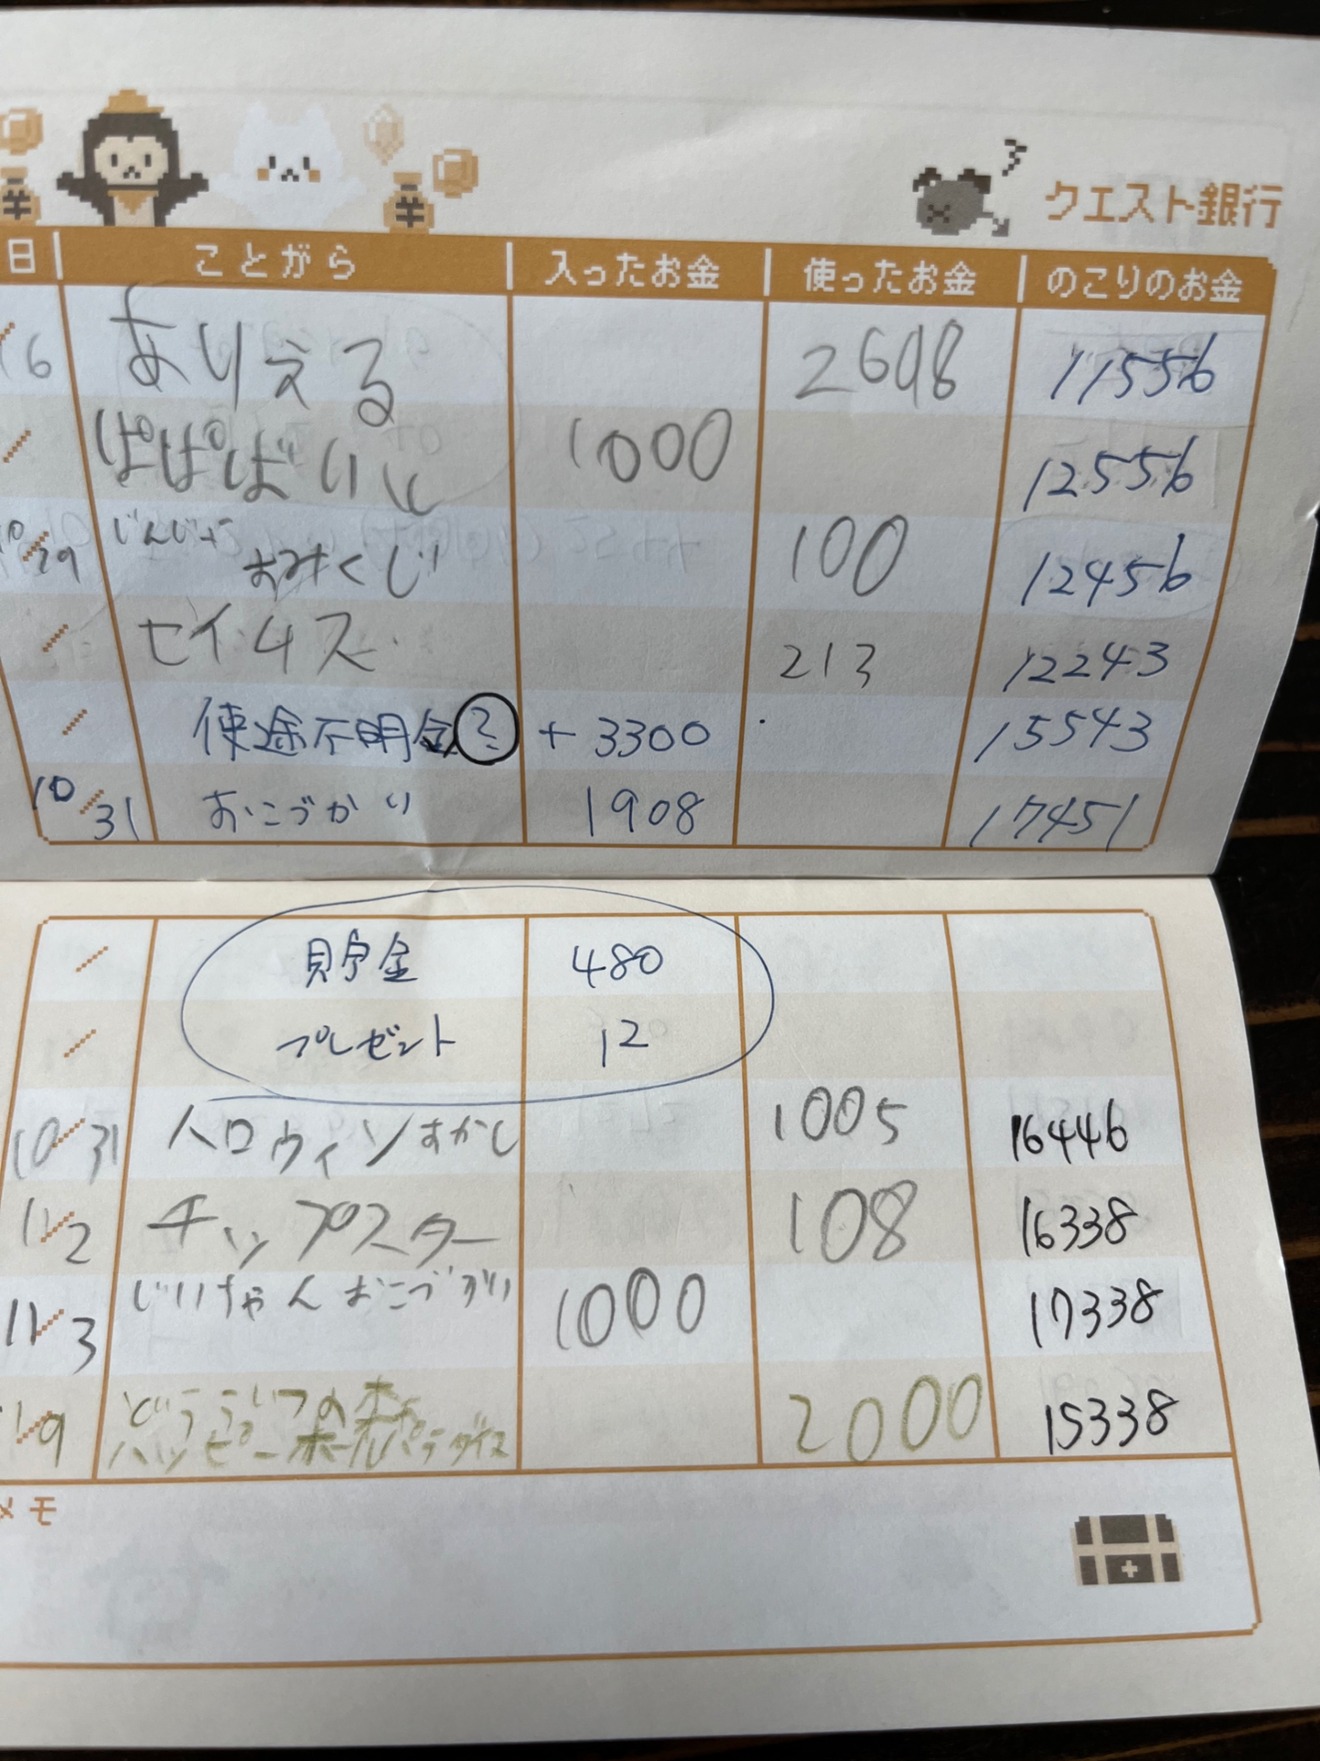 クエスト銀行
日 ことがら 入ったお金 使ったお金 のこりのお金
16 ありえる 2698 11556
ぱぱばいと 1000 12556
10/29 じんじゃ おみくじ 100 12456
セイムス 213 12243
使途不明金? +3300 15543
10/31 おこづかい 1908 17451
貯金 480
プレゼント 12
10/31 ハロウィンおかし 1005 16446
11/2 チップスター 108 16338
11/3 じいちゃんおこづかい 1000 17338
1/9 どうぶつの森 2000 15338
ハッピーホームパラダイス
メモ